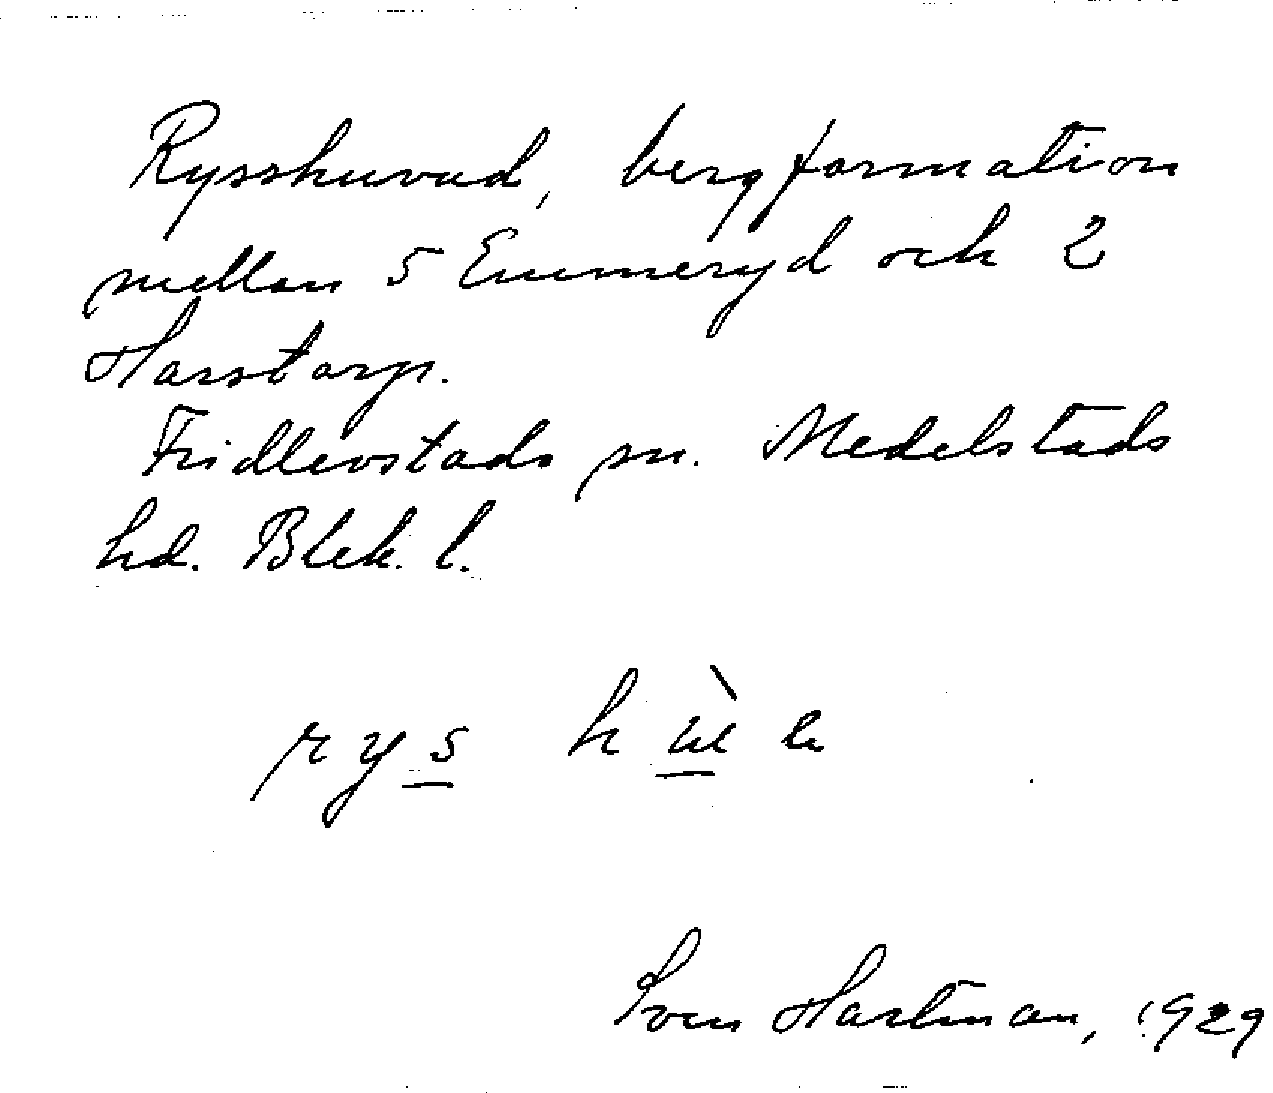 Rysshuvud, bergformation
mellan 5 Emmeryd och 2
Harstorp.
Fridlevstads sn. Medelstads
hd. Blek. l.
rys
Sven Hartman, 1929